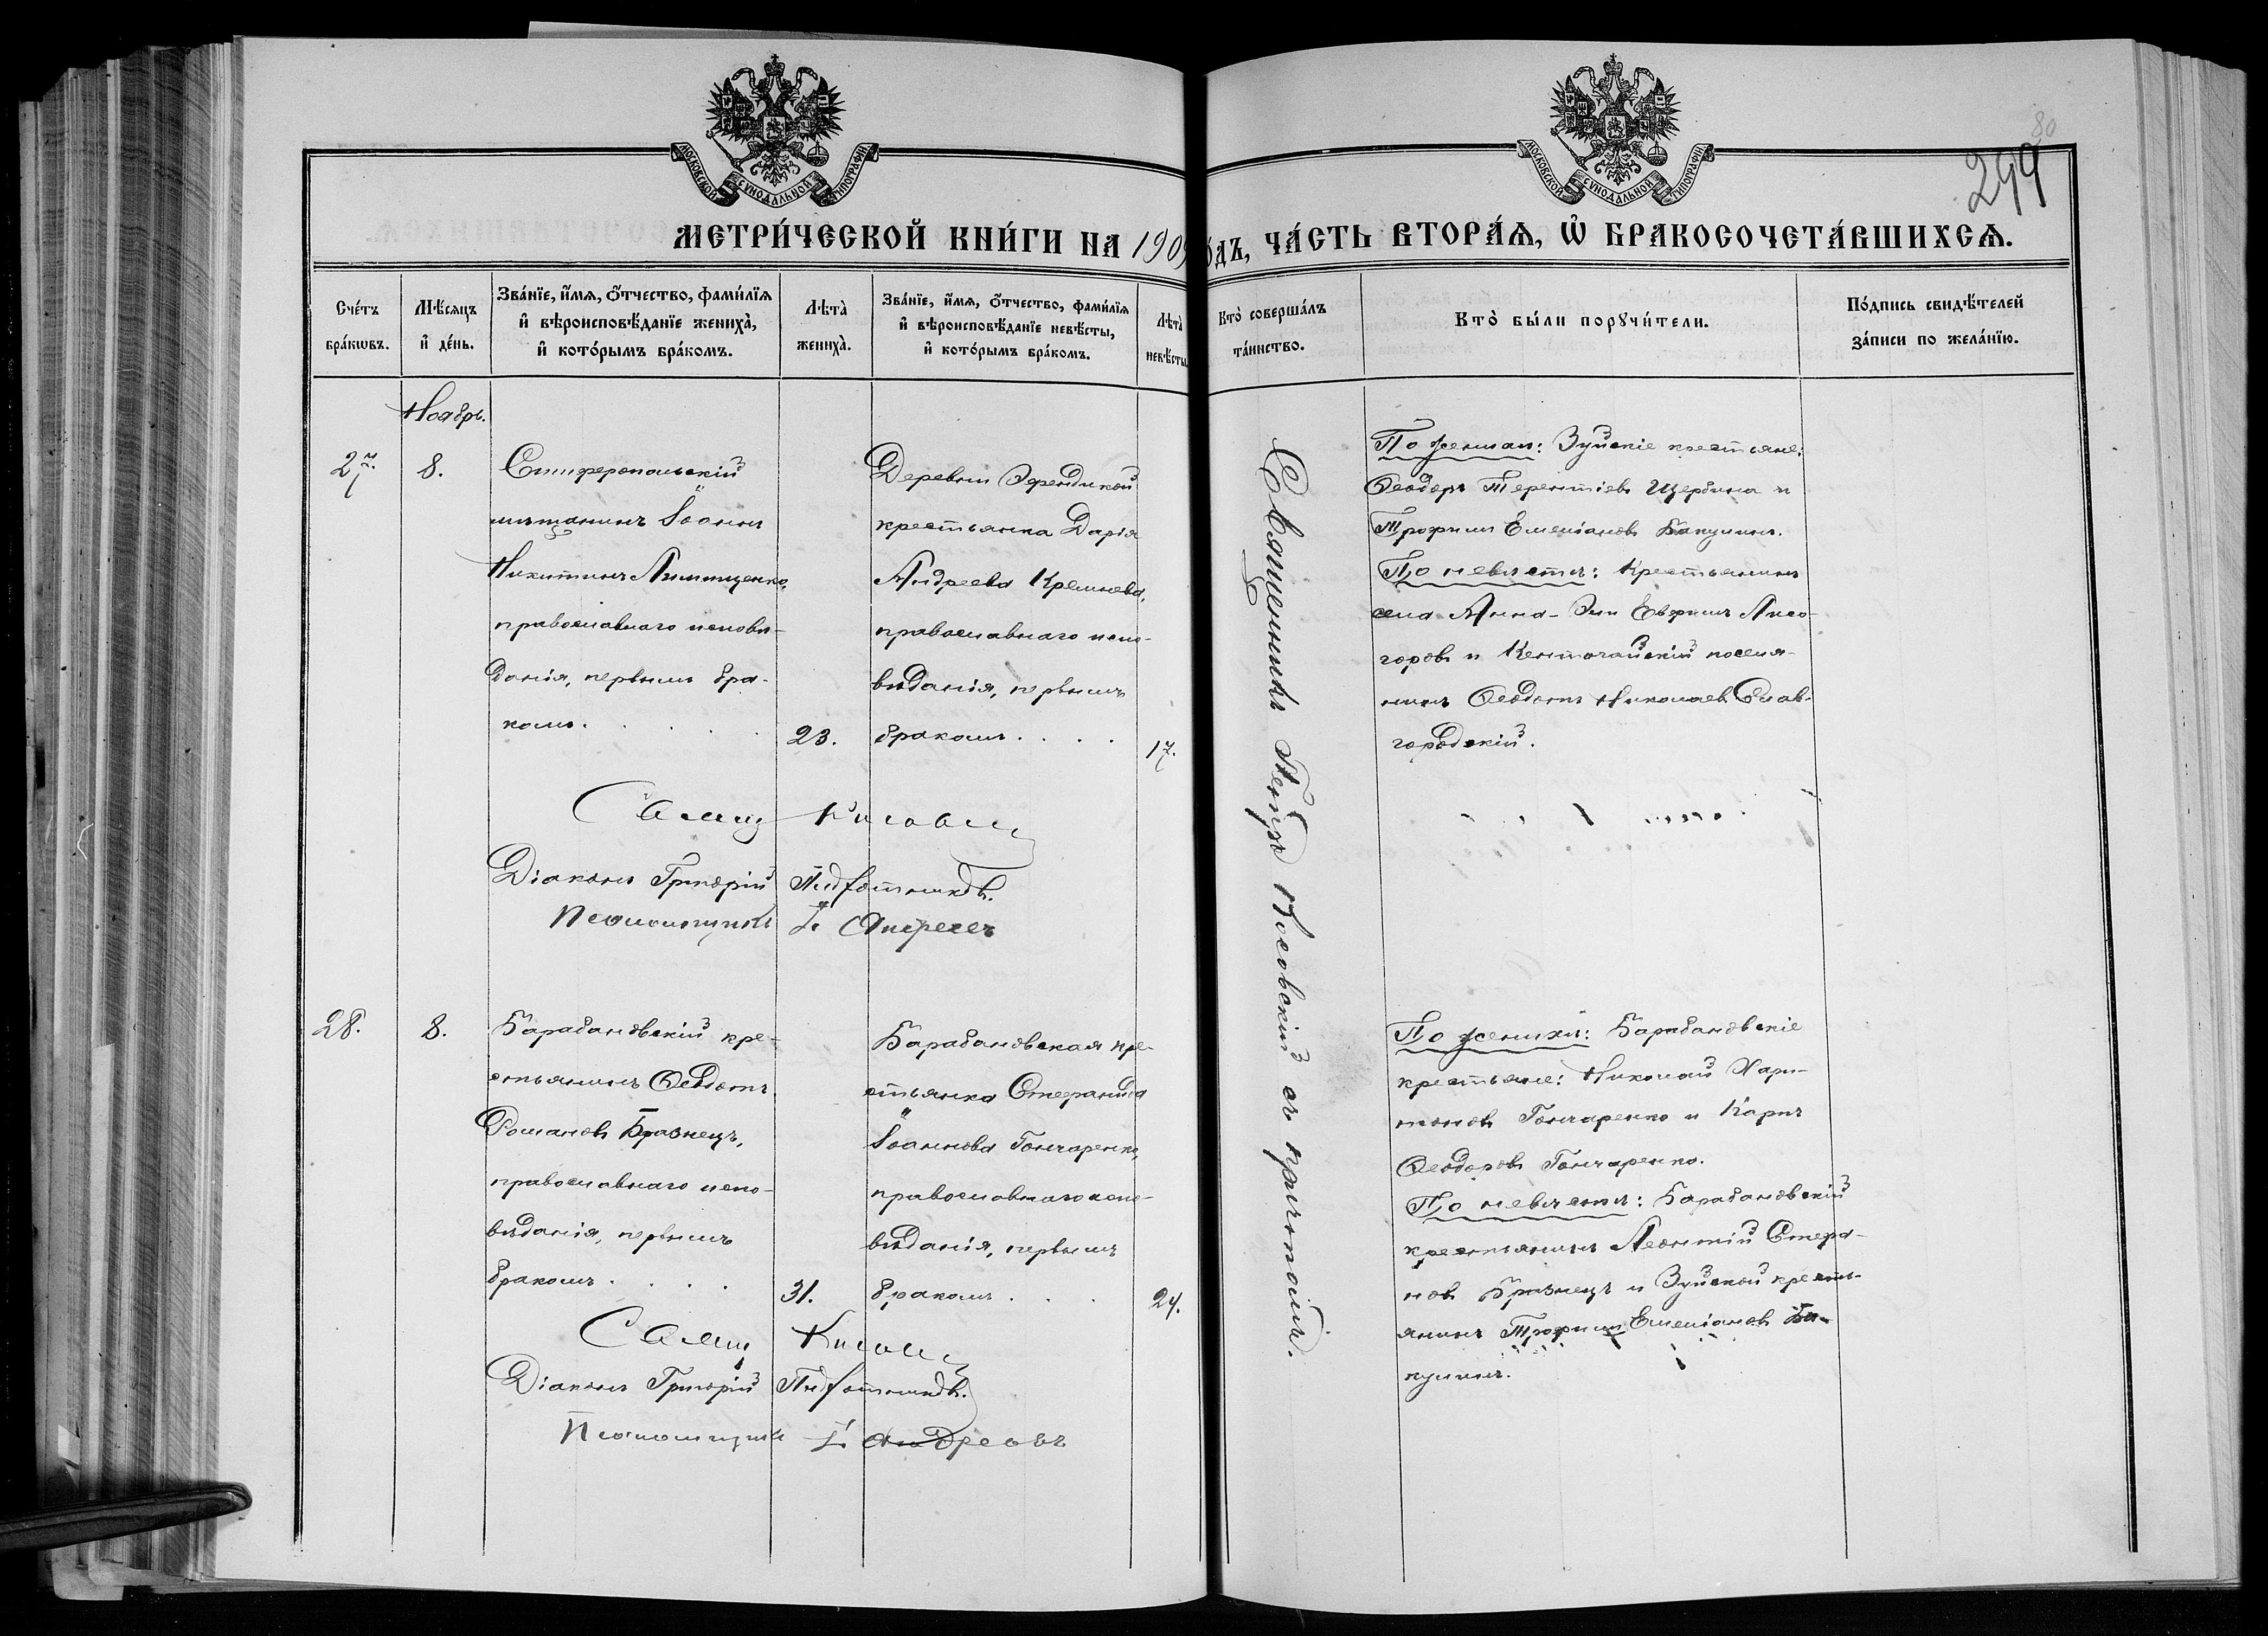 МОСКОВСКОЙ СѴНОДАЛЬНОЙ ТИПОГРАФІИ
МОСКОВСКОЙ СѴНОДАЛЬНОЙ ТИПОГРАФІИ
80
299
МЕТРИ́ЧЕСКОЙ КНИ́ГИ НА 1909
О́ДЪ, ЧА́СТЬ ВТОРА́Ѧ, Ѽ БРАКОСОЧЕТА́ВШИХСѦ.
Сче́тъ бра́кѡвъ.
Мѣ́сяцъ и҆ де́нь.
Зва́нїе, и҆́мѧ, ѻ҆́тчество, фами́лїѧ
и҆ вѣроисповѣ́данїе жениха̀,
и҆ кото́рымъ бра́комъ.
Лѣта̀ жениха̀.
Зва́нїе, и҆́мѧ, ѻ҆́тчество, фами́лїѧ
и҆ вѣроисповѣ́данїе невѣ́сты,
и҆ кото́рымъ бра́комъ.
Лѣта̀ невѣ́сты.
Кто̀ соверша́лъ та́инство.
Кто̀ бы́ли порꙋчи́тели.
По́дпись свидѣ́телей за́писи по жела́нїю.
Ноябрь.
27.
8.
Симферопольскій
мѣщанинъ Іоаннъ
Никитинъ
православнаго исповѣ-
данія, первымъ бра-
комъ.
23.
Деревни Эфендикой
крестьянка Дарія
Андреева
православнаго испо-
вѣданія, первымъ
бракомъ.
17.
Священникъ Петръ съ причтомъ.
По женихѣ: Зуйскіе крестьяне:
Ѳеодоръ Терентіевъ Щербина и
Трофимъ Емеліановъ Бакулинъ.
По невѣстѣ: Крестьянинъ
села Анна-Эли Евфимъ Лисо-
горовъ и поселя-
нинъ Ѳеодотъ Николаевъ Слав-
городскій.
Діаконъ Григорій
Псаломщикъ
28.
8.
Барабановскій кре-
стьянинъ Ѳеодотъ
Романовъ Бразнецъ,
православнаго испо-
вѣданія, первымъ
бракомъ.
31.
Барабановская кре-
стьянка Стефанида
Іоаннова Гончаренко,
православнаго испо-
вѣданія, первымъ
бракомъ.
24.
По женихѣ: Барабановскіе
крестьяне: Николай Хари-
тоновъ Гончаренко и Карпъ
Ѳеодоровъ Гончаренко.
По невѣстѣ: Барабановскій
крестьянинъ Леонтій Стефа-
новъ Бразнецъ и Зуйской кресть-
янинъ Трофимъ Емеліановъ Ба-
кулинъ.
Діаконъ Григорій
Псаломщикъ Андреевъ